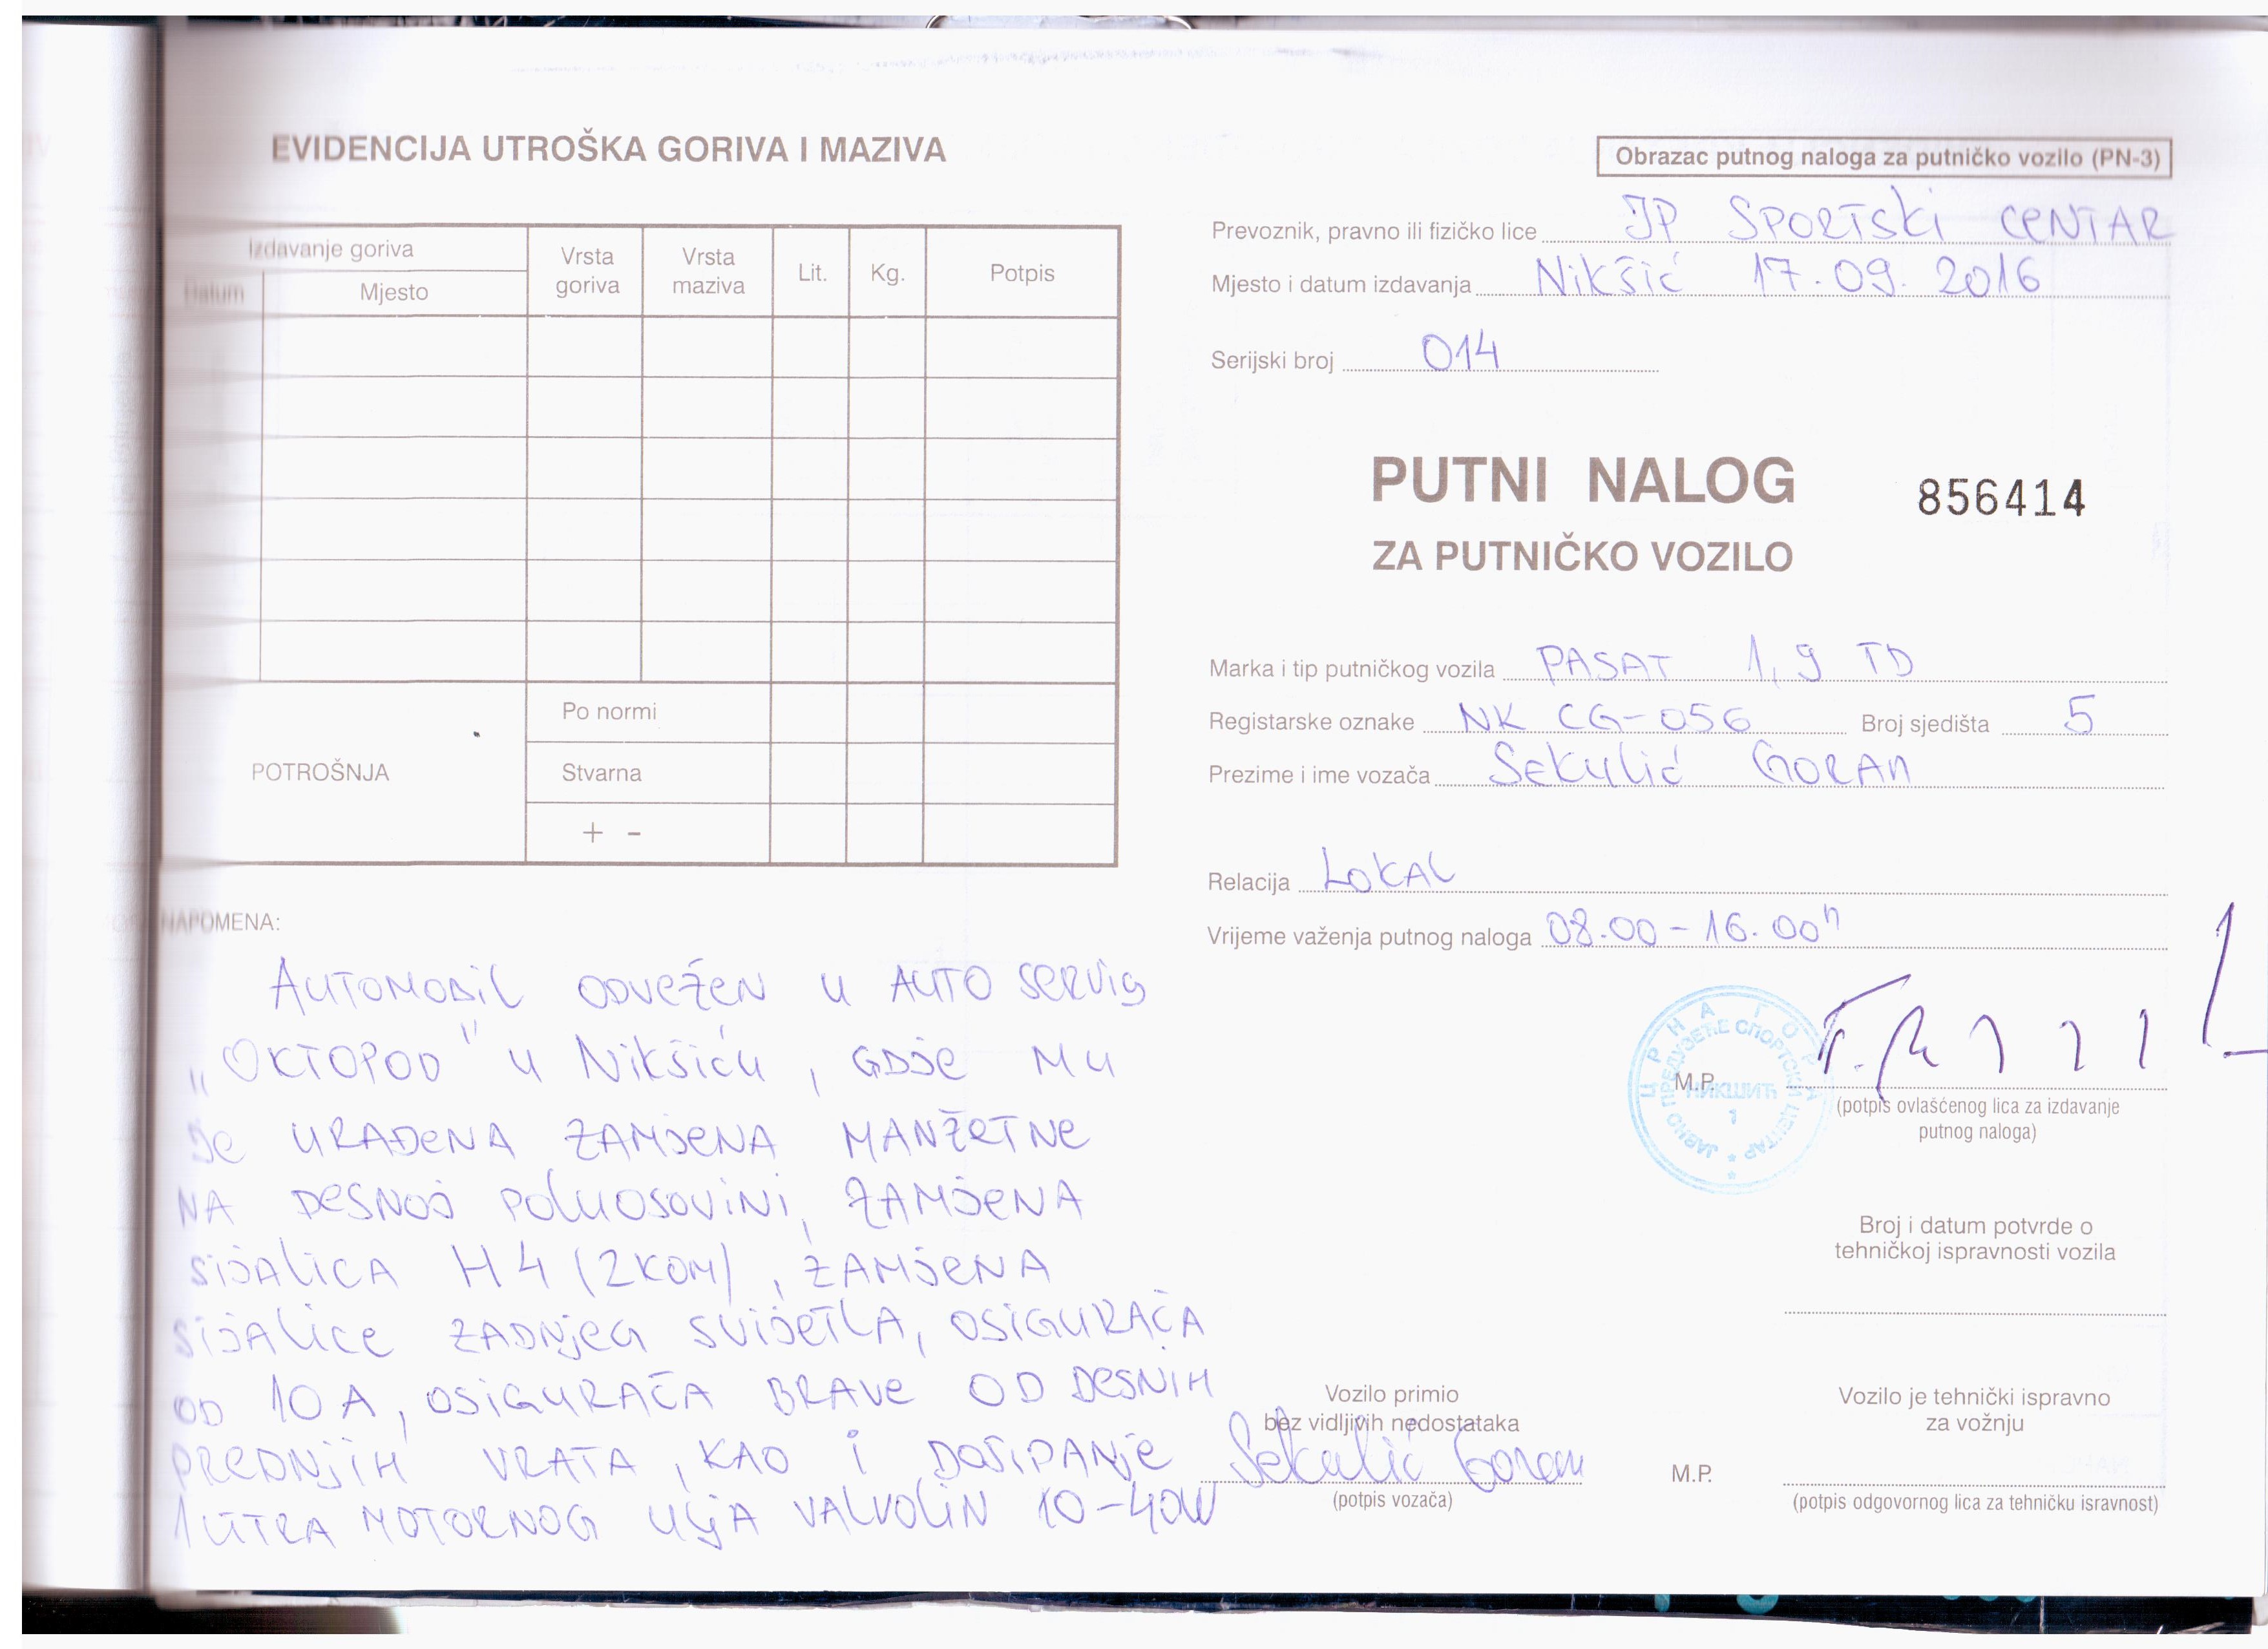 EVIDENCIJA UTROŠKA GORIVA I MAZIVA
Izdavanje goriva
Datum
Mjesto
Vrsta goriva
Vrsta maziva
Lit.
Kg.
Potpis
POTROŠNJA
Po normi
Stvarna
+ -
NAPOMENA:
AUTOMOBIL ODVEŽEN U AUTO SERVIS
„OKTOPOD" U NIKŠIĆU, GDJE MU
JE URAĐENA ZAMJENA MANŽETNE
NA DESNOJ POLUOSOVINI, ZAMJENA
SIJALICA H4 (2KOM), ZAMJENA
SIJALICE ZADNJEG SVIJETLA, OSIGURAČA
OD 10A, OSIGURAČA BRAVE OD DESNIH
PREDNJIH VRATA, KAO I DOSIPANJE
1 LITRA MOTORNOG ULJA VALVOLIN 10-40W
Obrazac putnog naloga za putničko vozilo (PN-3)
Prevoznik, pravno ili fizičko lice JP SPORTSKI CENTAR
Mjesto i datum izdavanja Nikšić 17.09.2016
Serijski broj 014
PUTNI NALOG
856414
ZA PUTNIČKO VOZILO
Marka i tip putničkog vozila PASAT 1,9 TD
Registarske oznake NK CG-056 Broj sjedišta 5
Prezime i ime vozača Sekulić Goran
Relacija LOKAL
Vrijeme važenja putnog naloga 08.00-16.00h
ЦРНА ГОРА
ЈАВНО ПРЕДУЗЕЋЕ СПОРТСКИ ЦЕНТАР
НИКШИЋ
1
M.P.
(potpis ovlašćenog lica za izdavanje
putnog naloga)
Broj i datum potvrde o
tehničkoj ispravnosti vozila
Vozilo primio
bez vidljivih nedostataka
Sekulić Goran
(potpis vozača)
Vozilo je tehnički ispravno
za vožnju
M.P.
(potpis odgovornog lica za tehničku isravnost)